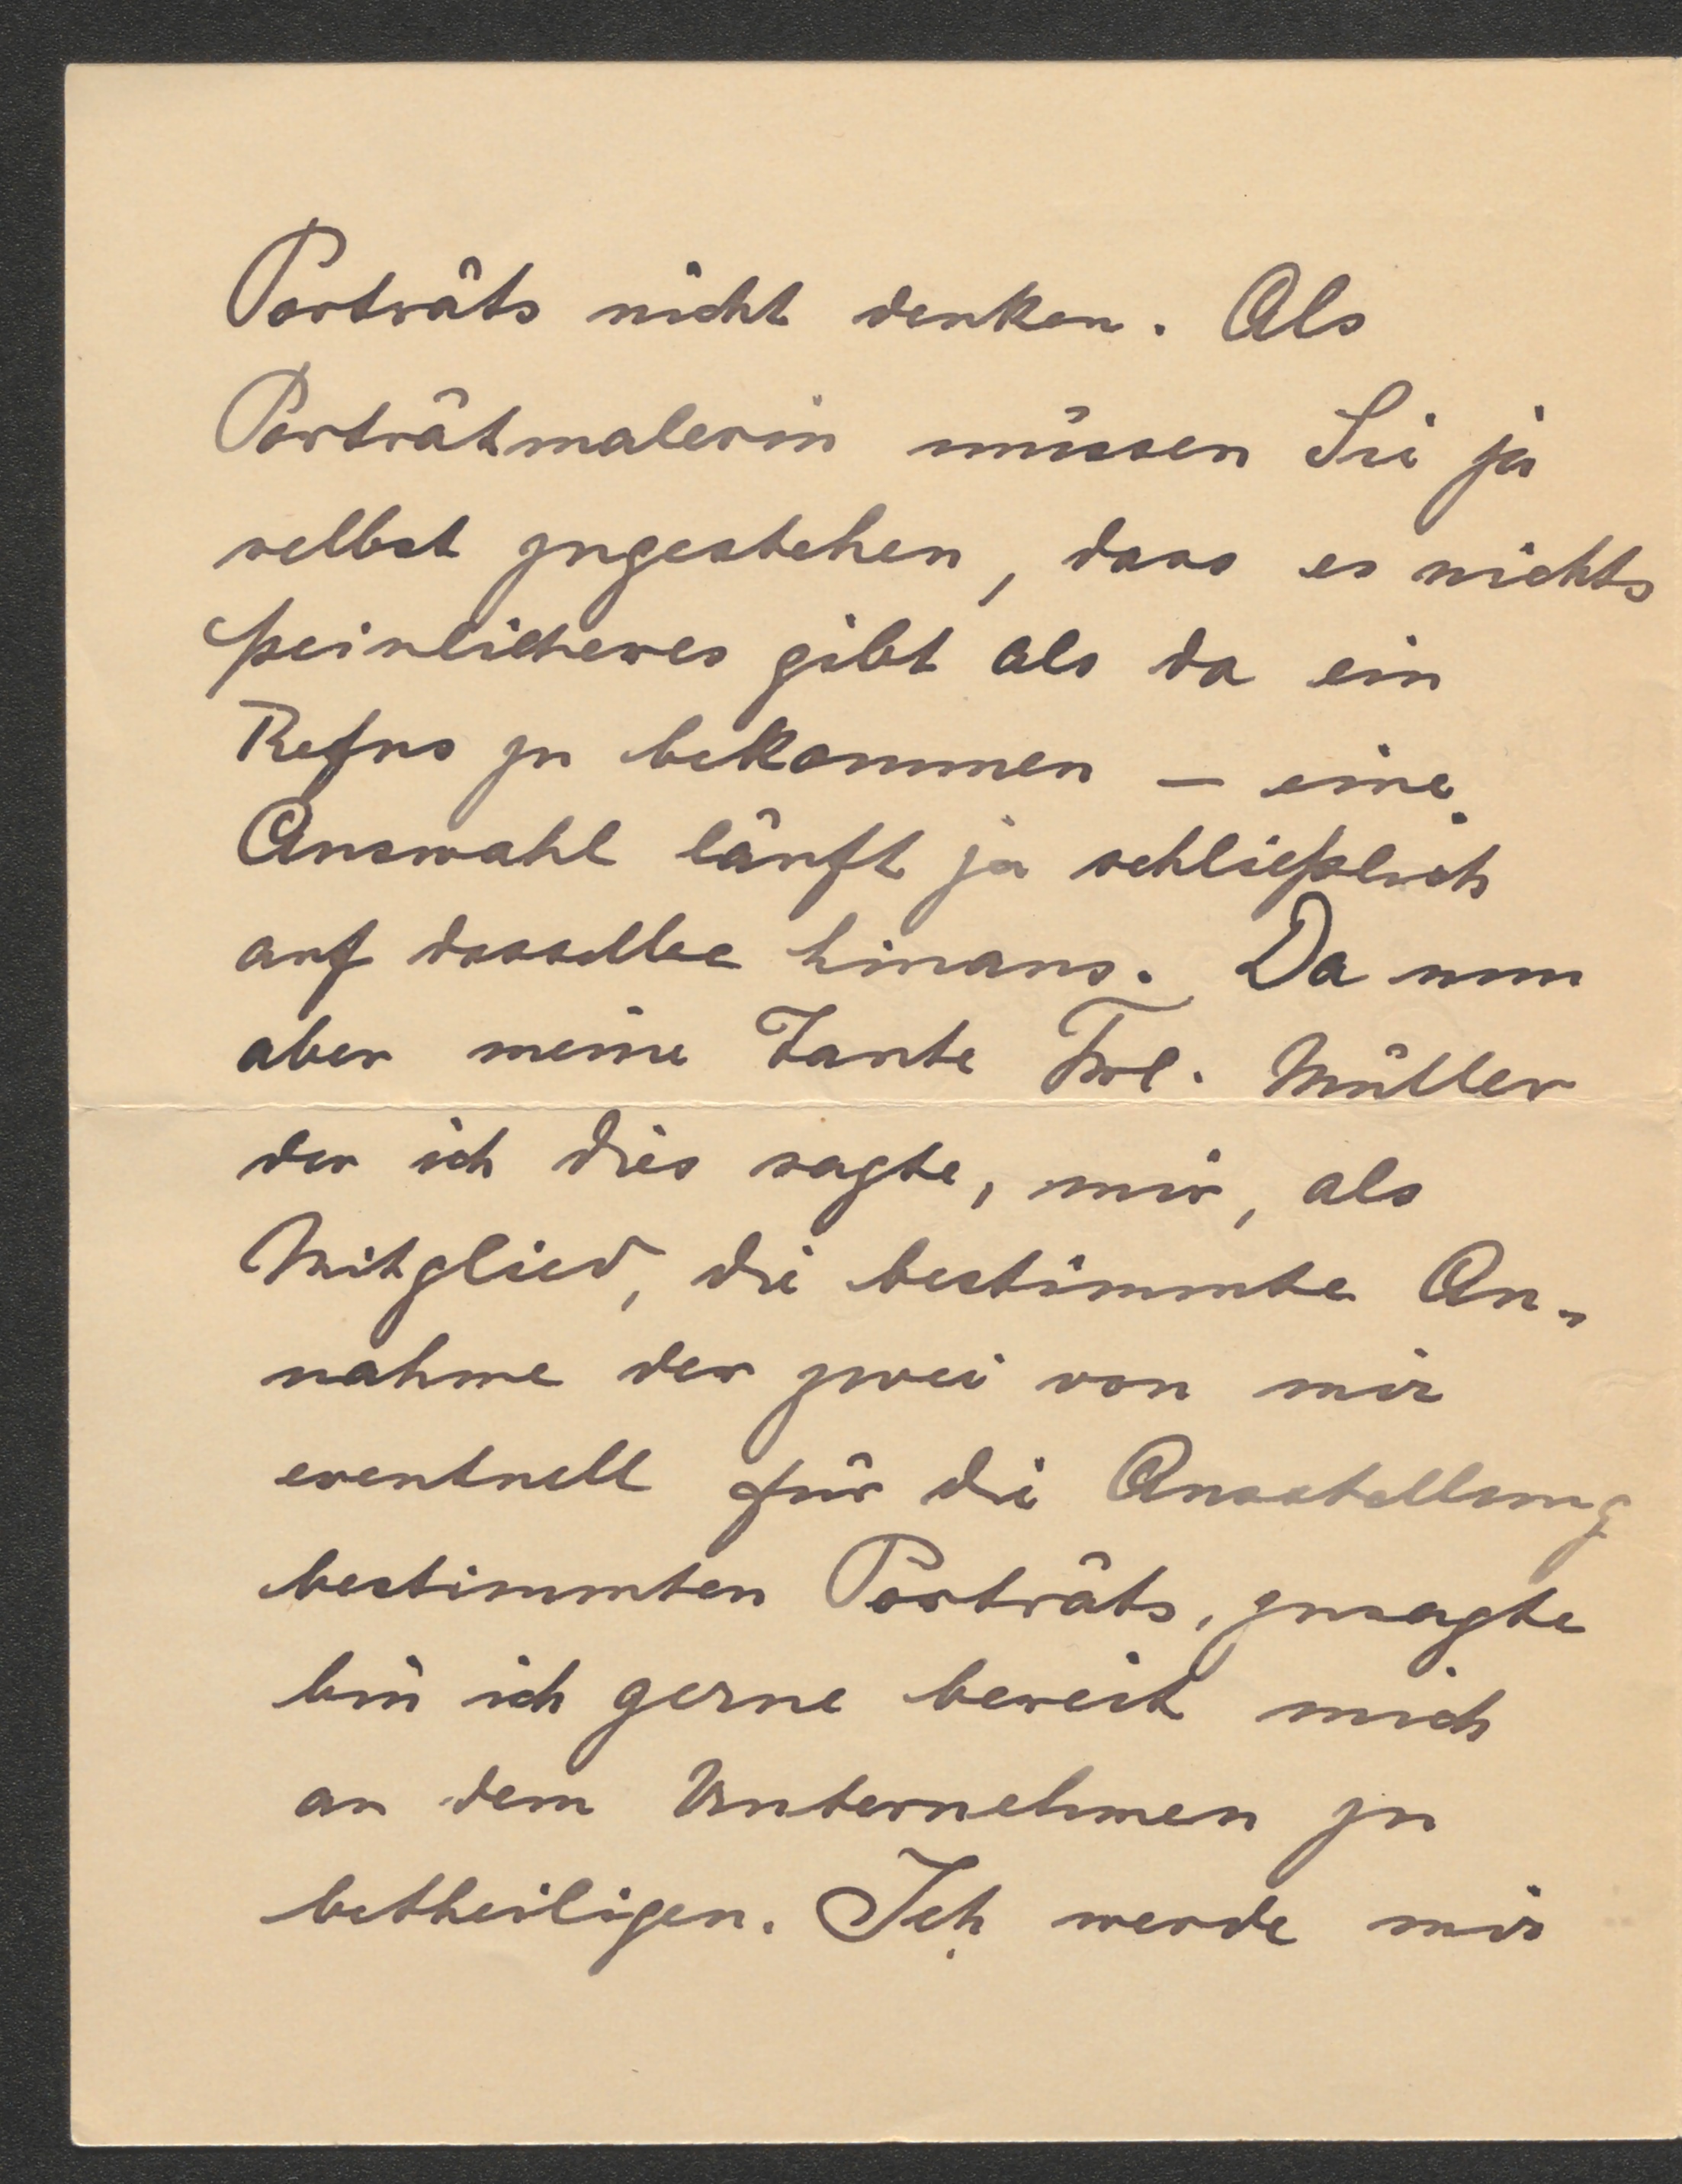 Porträts nicht denken. Als
Porträtmalerin müssen Sie ja
selbst zugestehen, dass es nichts
peinlicheres gibt als da ein
Refus zu bekommen – eine
Auswahl läuft ja schließlich
auf dasselbe hinaus. Da nun
aber meine Tante Frl. Müller
der ich dies sagte, mir, als
Mitglied, die bestimmte An-
nahme der zwei von mir
eventuell für die Ausstellung
bestimmten Porträts, zusagte
bin ich gerne bereit mich
an dem Unternehmen zu
betheiligen. Ich werde mir